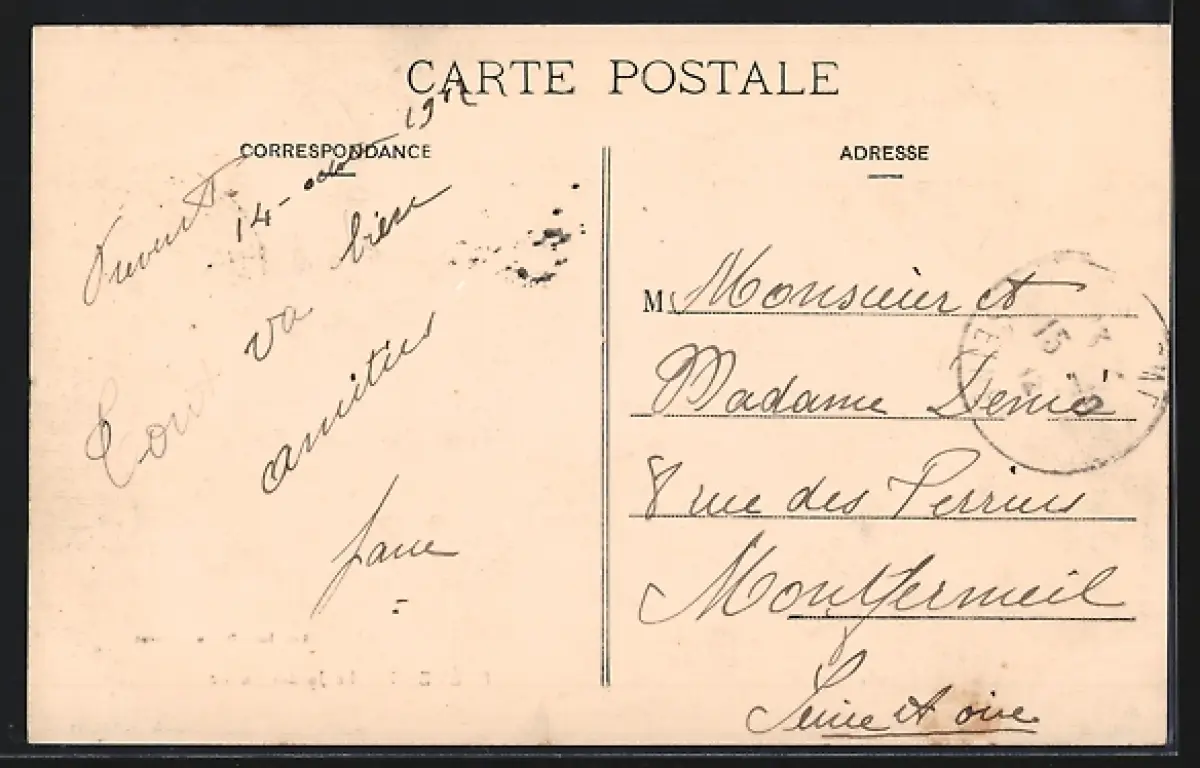 CARTE POSTALE
CORRESPONDANCE
14 - octo 1912
Tout va bien
amitiés
Jane
ADRESSE
M Monsieur et
Madame Denis
8 rue des Perrins
Montfermeil
Seine et oise
15